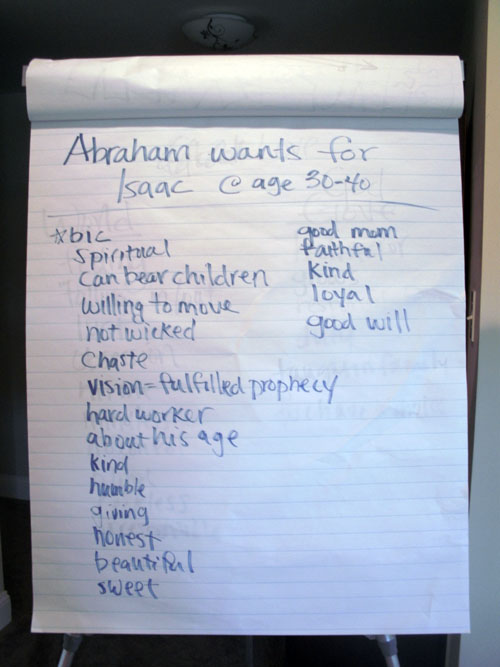 Abraham wants for
Isaac @ age 30-40
*bic
spiritual
can bear children
willing to move
not wicked
chaste
vision = fulfilled prophecy
hard worker
about his age
kind
humble
giving
honest
beautiful
sweet
good mom
faithful
kind
loyal
good will